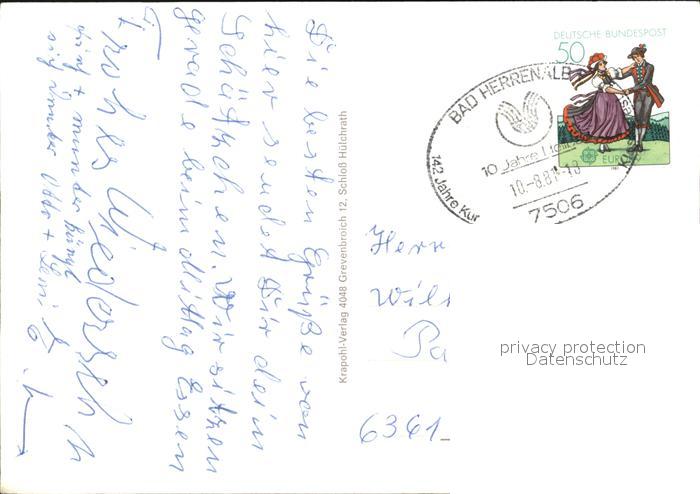 Die besten Grüße von
hier sendet Dir dein
Schätzchen. Wir sitzen
gerade beim Mittag Essen
Frohes Wiedersehn
+ munter
Krapohl-Verlag 4048 Grevenbroich 12, Schloß Hülchrath
DEUTSCHE BUNDESPOST
50
EUROPA
1981
BAD HERRENALB
10 Jahre
142 Jahre Kur
10.-8.81-18
7506
Herr
Wil
Pa
6361
privacy protection
Datenschutz